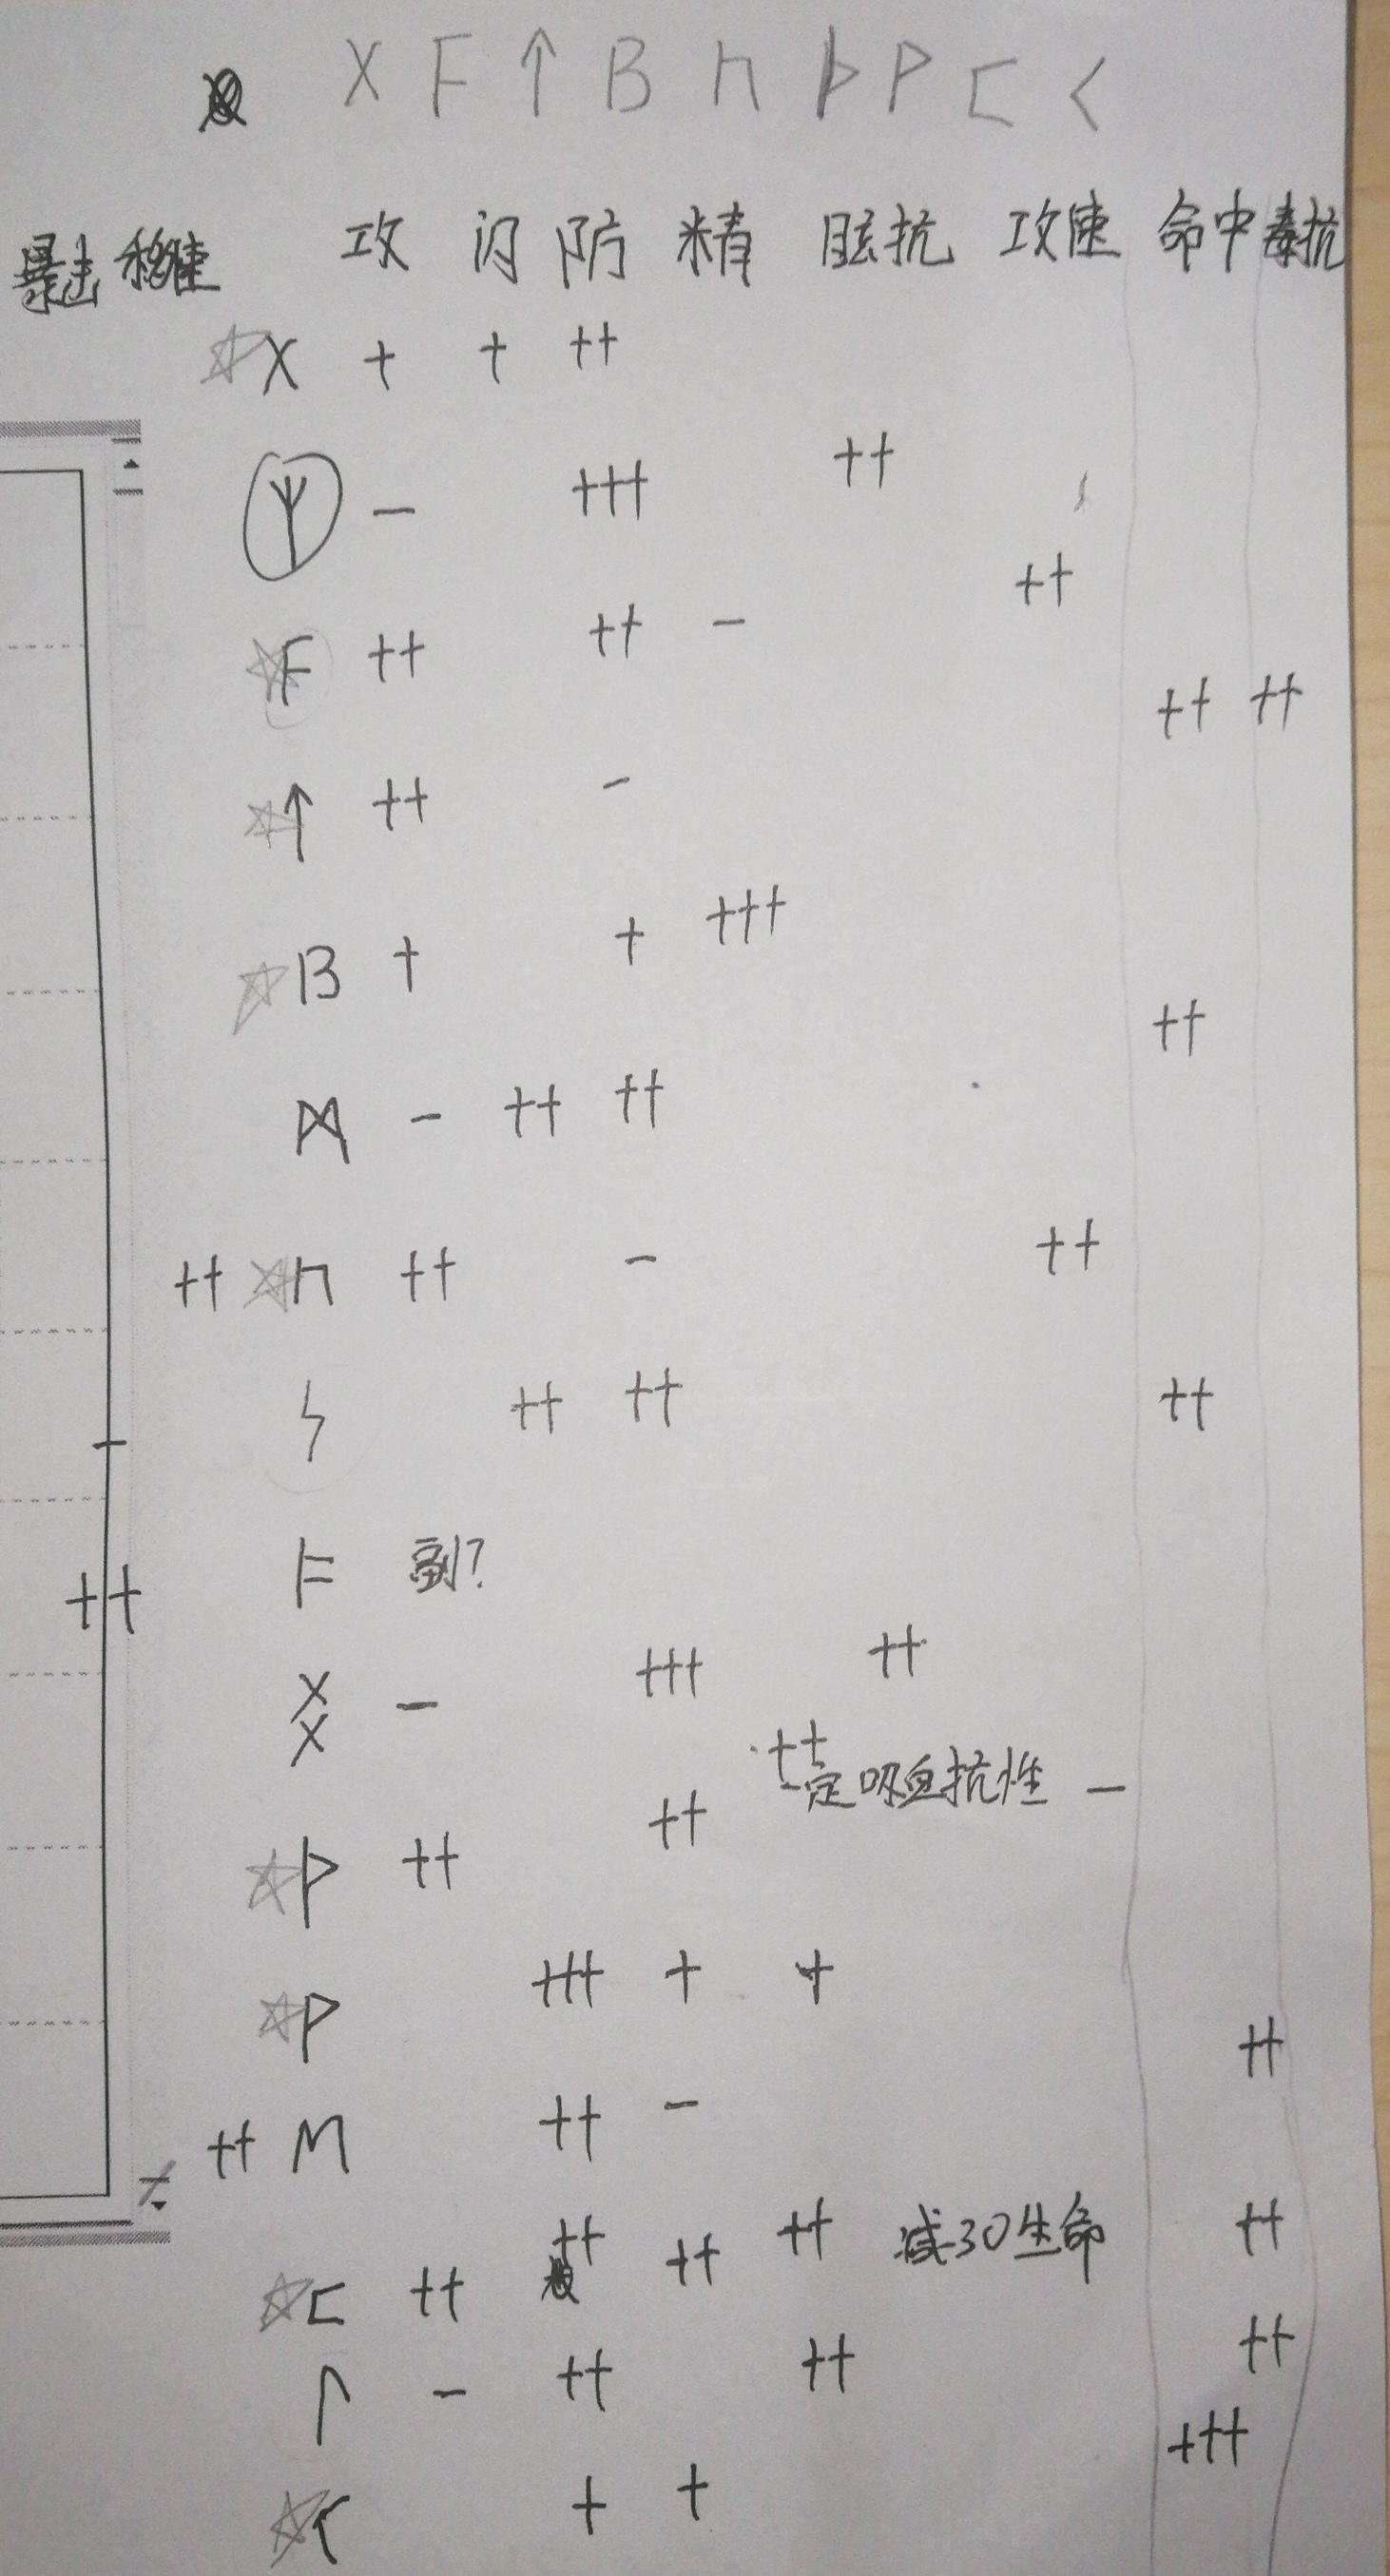 X F ↑ B ᚢ ᚦ P ㄷ <
暴击 移速 攻 闪 防 精 眩抗 攻速 命中 毒抗
☆X + + ++
ᛉ - +++ ++
☆F ++ ++ - ++
☆↑ ++ - ++ ++
☆B + + +++
ᛗ - ++ ++ ++
++ ☆ᚢ ++ - ++
ᛋ ++ ++ ++
-
F 副?
++
X X - +++ ++
☆ᚦ ++ ++ ++ 一定吸血抗性 -
☆P +++ + +
++ M ++ - ++
☆ㄷ ++ ++ ++ ++ 减30生命 ++
ᛚ - ++ ++ ++
☆< + + +++